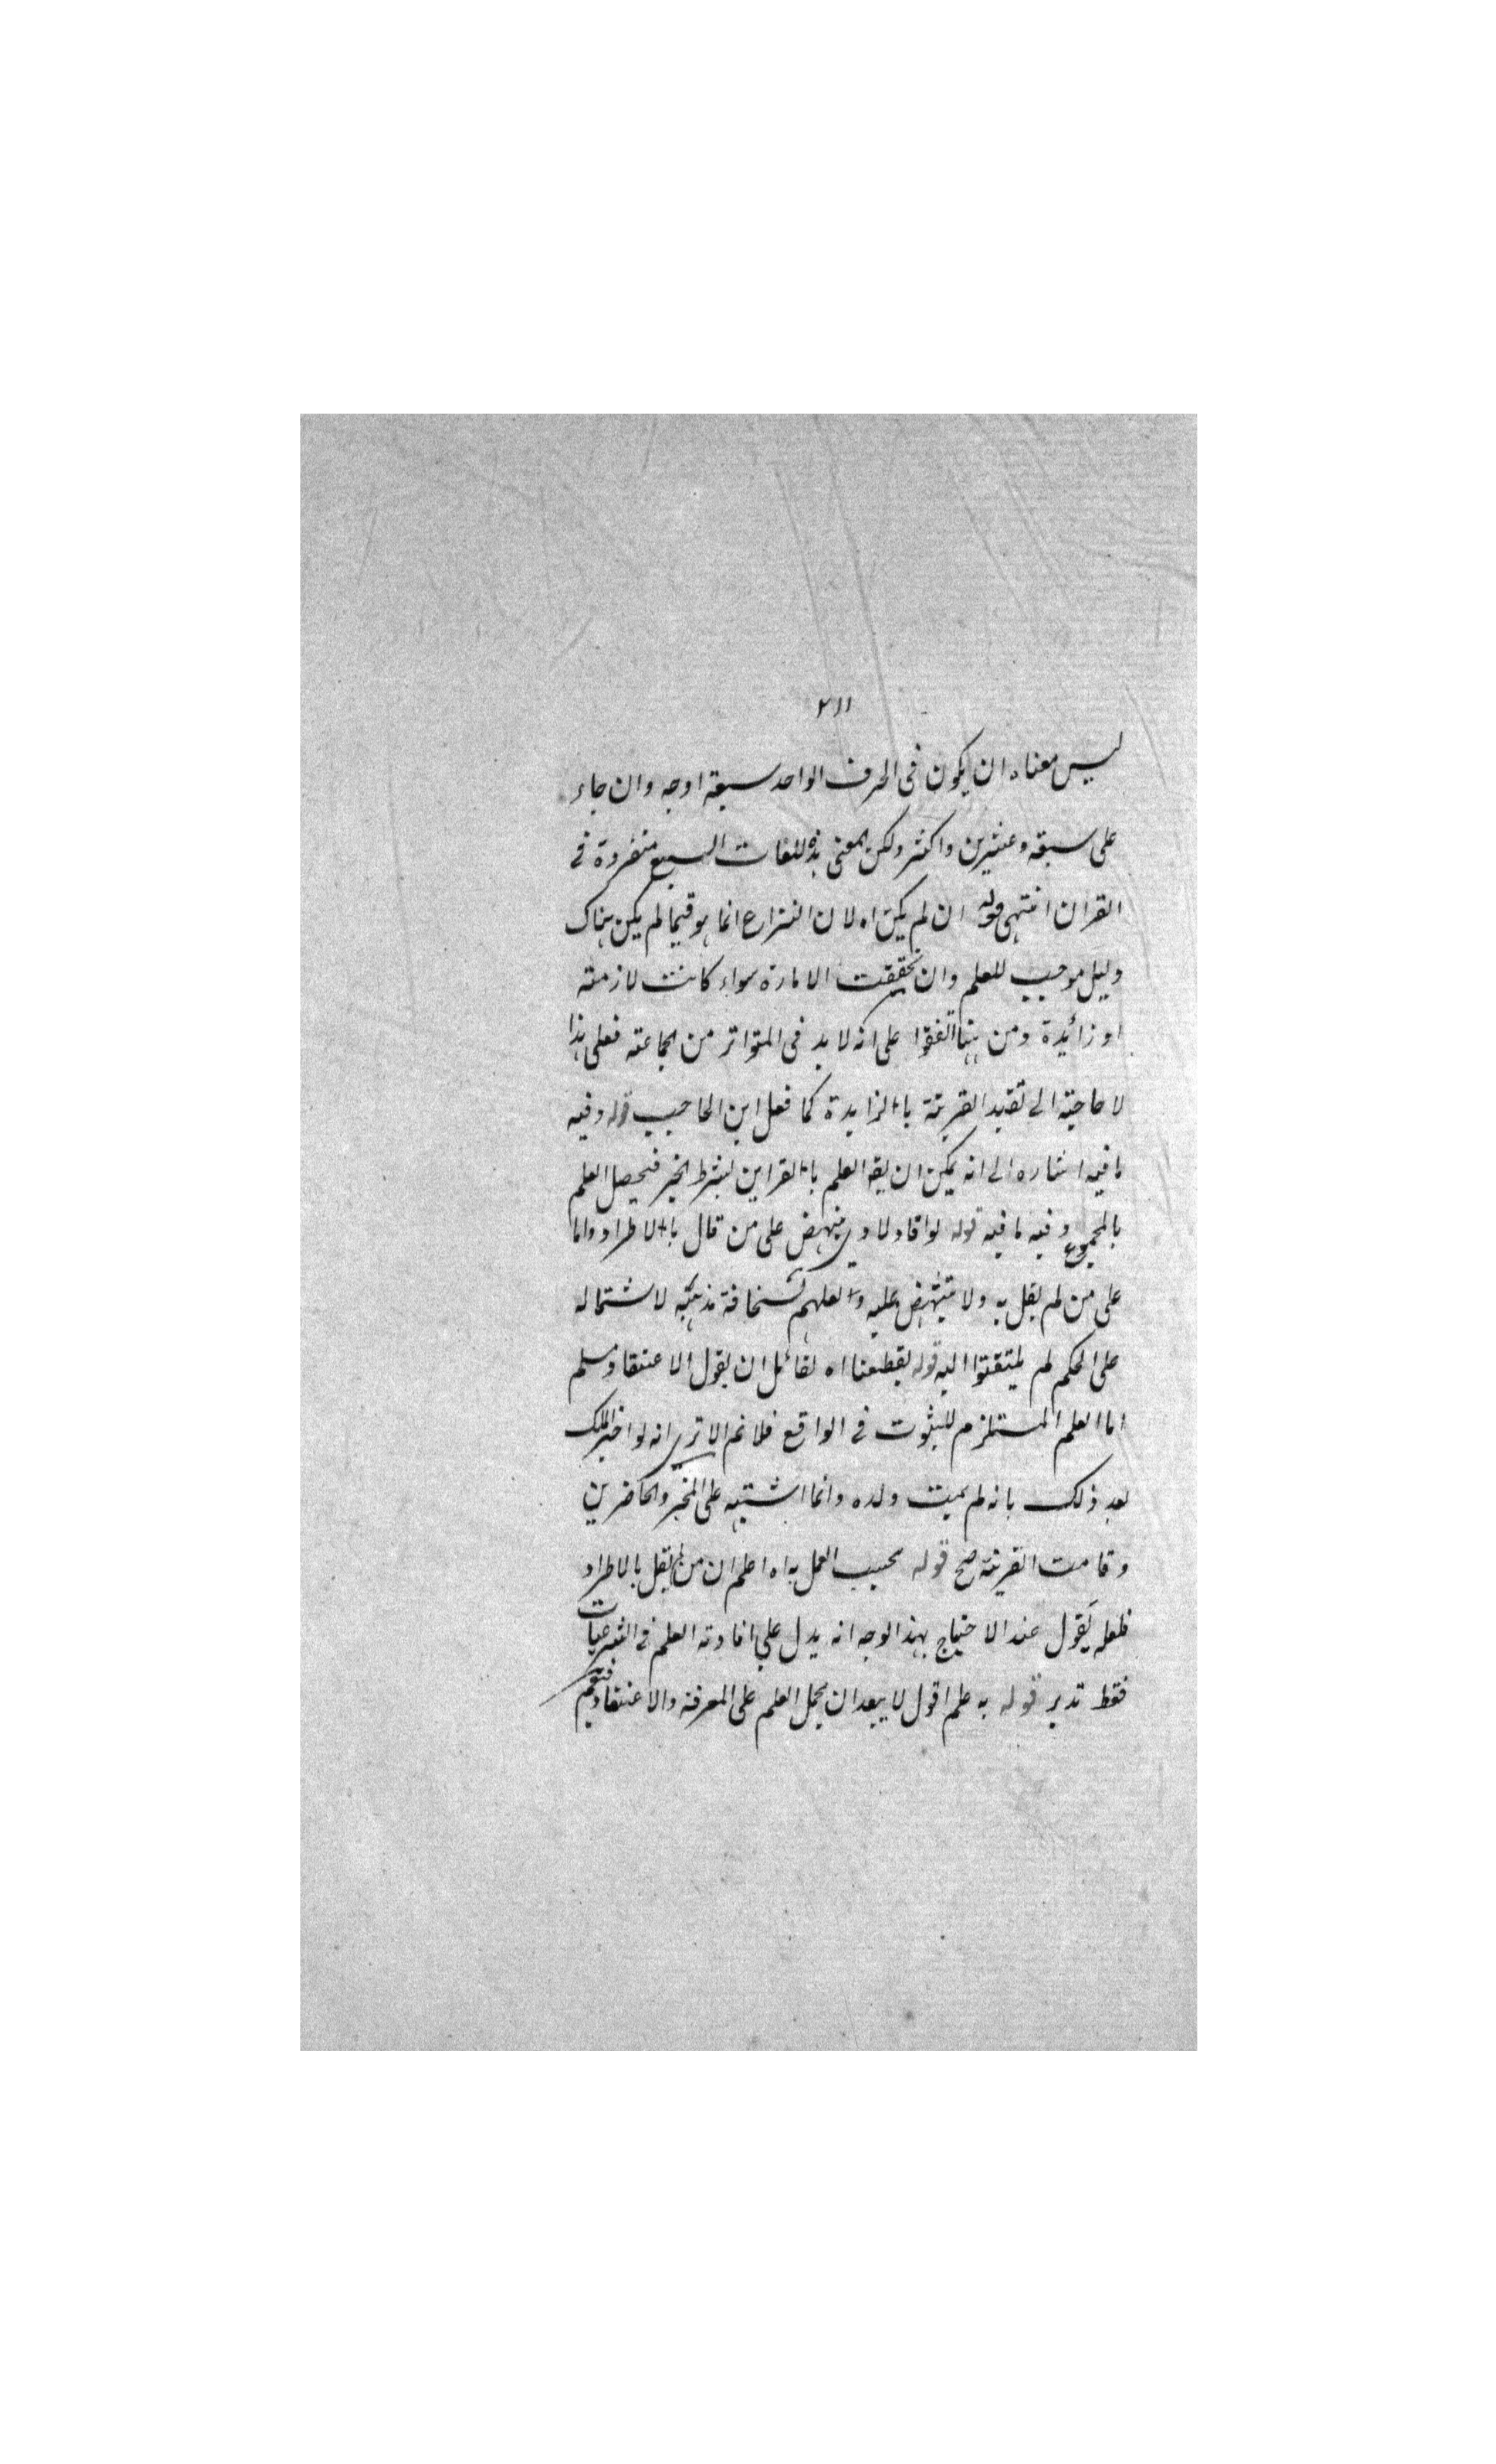 ٢١١
ليس معناه ان يكون فى الحرف الواحد سبعة اوجه وان جاء
على سبعة وعشرين واكثر ولكن المعنى هذه اللغات السبع متفردة فى
القران انتهى قوله ان لم يكن اه لان النزاع انما هو فيما لم يكن هناك
دليل موجب للعلم وان تحققت الامارة سواء كانت لازمة
او زائيدة ومن هنا اتفقوا على انه لا بد فى المتواتر من الجماعة فعلى هذا
لا حاجة الى تقييد القرينة بالزايدة كما فعل ابن الحاجب قوله وفيه
ما فيه اشاره الى انه يمكن ان يقه العلم بالقراين بشرط الخبر فيحصل العلم
بالمجموع وفيه ما فيه قوله لو افاد لادى ينهض على من قال بالاطراد واما
على من لم يقل به ولا ينتهض عليه ولعلهم لسخافة مذهبه لاشتماله
على الحكم لم يلتفتوا اليه قوله لقطعنا اه لقائل ان يقول الاعتقاد مسلم
اما العلم المستلزم للثبوت فى الواقع فلا نم الا ترى انه لو اخبر الملك
بعد ذلك بانه لم يميت ولده وانما اشتبه على المخبر والحاضرين
وقامت القرينة صح قوله يجب العمل به اه اعلم ان من لم يقل بالاطراد
فلعله يقول عند الاحتجاج بهذا الوجه انه يدل على افادته العلم فى الشرعيات
فقط تدبر قوله به علم اقول لا يبعد ان يحمل العلم على المعرفة والاعتقاد فيتم